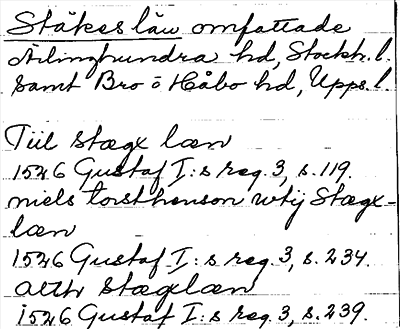 Stäkes län omfattade
Ärlinghundra hd, Stockh. l.
samt Bro o Håbo hd, Upps. l.
Tiil stægx læn
1526 Gustaf I:s reg. 3, s. 119.
niels torsthenson wtij Stægx-
læn
1526 Gustaf I:s reg. 3, s. 234.
atth stægxlæn
1526 Gustaf I:s reg. 3, s. 239.